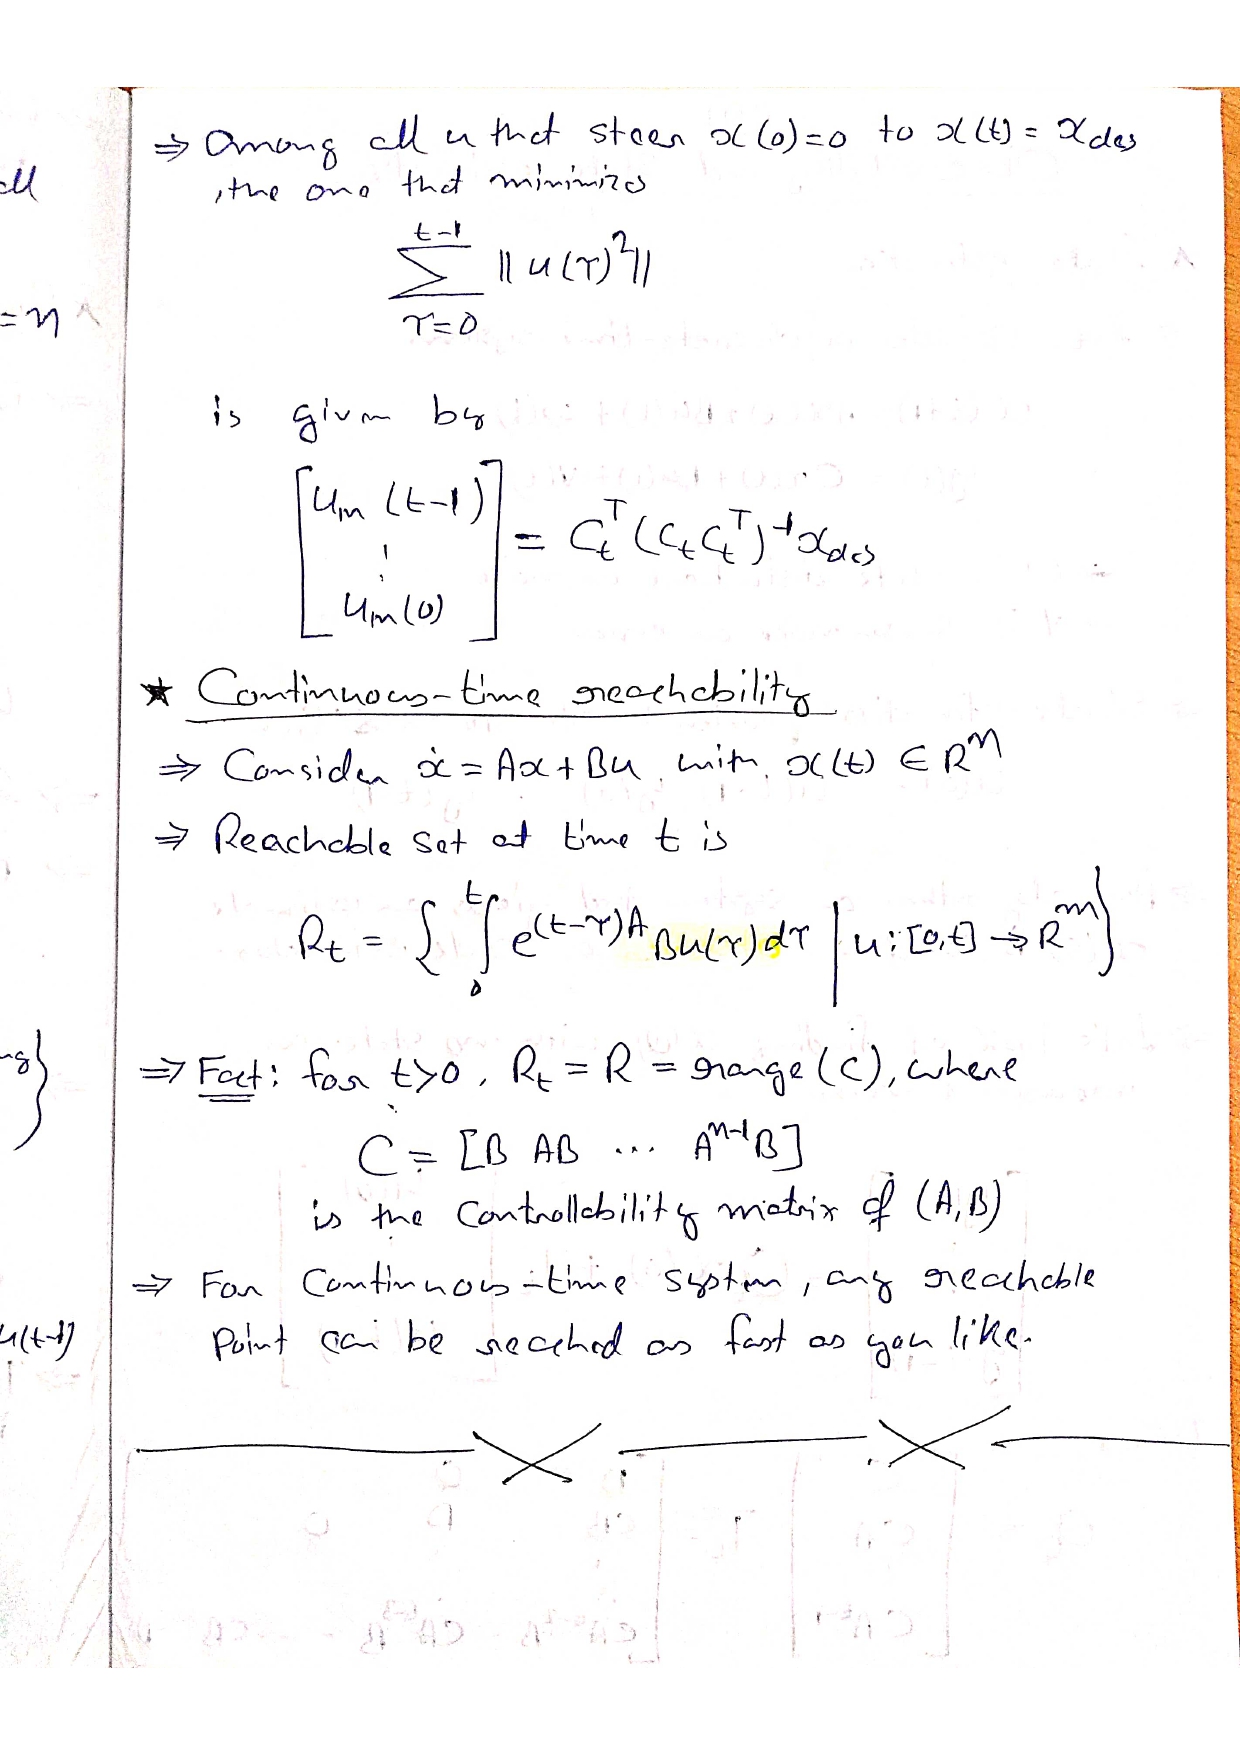 ⇒ Among all u that steer x(0)=0 to x(t) = x_des
, the one that minimizes
t-1
∑ ‖u(τ)²‖
τ=0
is given by
[u_m(t-1) ⋮ u_m(0)] = C_t^T (C_t C_t^T)^-1 x_des
★ Continuous-time reachability
⇒ Consider ẋ = Ax + Bu with x(t) ∈ R^n
⇒ Reachable set at time t is
R_t = { ∫_0^t e^(t-τ)A Bu(τ)dτ | u:[0,t] → R^m }
⇒ Fact: for t>0, R_t = R = range(C), where
C = [B AB ... A^n-1 B]
is the controllability matrix of (A,B)
⇒ For Continuous-time system, any reachable
Point can be reached as fast as you like.
=n
u(t-1)